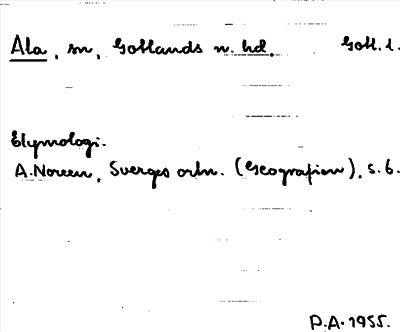 Ala, sn, Gotlands n. hd. Gotl. l.
Etymologi.
A. Noreen, Sverges ortn. (Geografien), s. 6.
P.A. 1955.